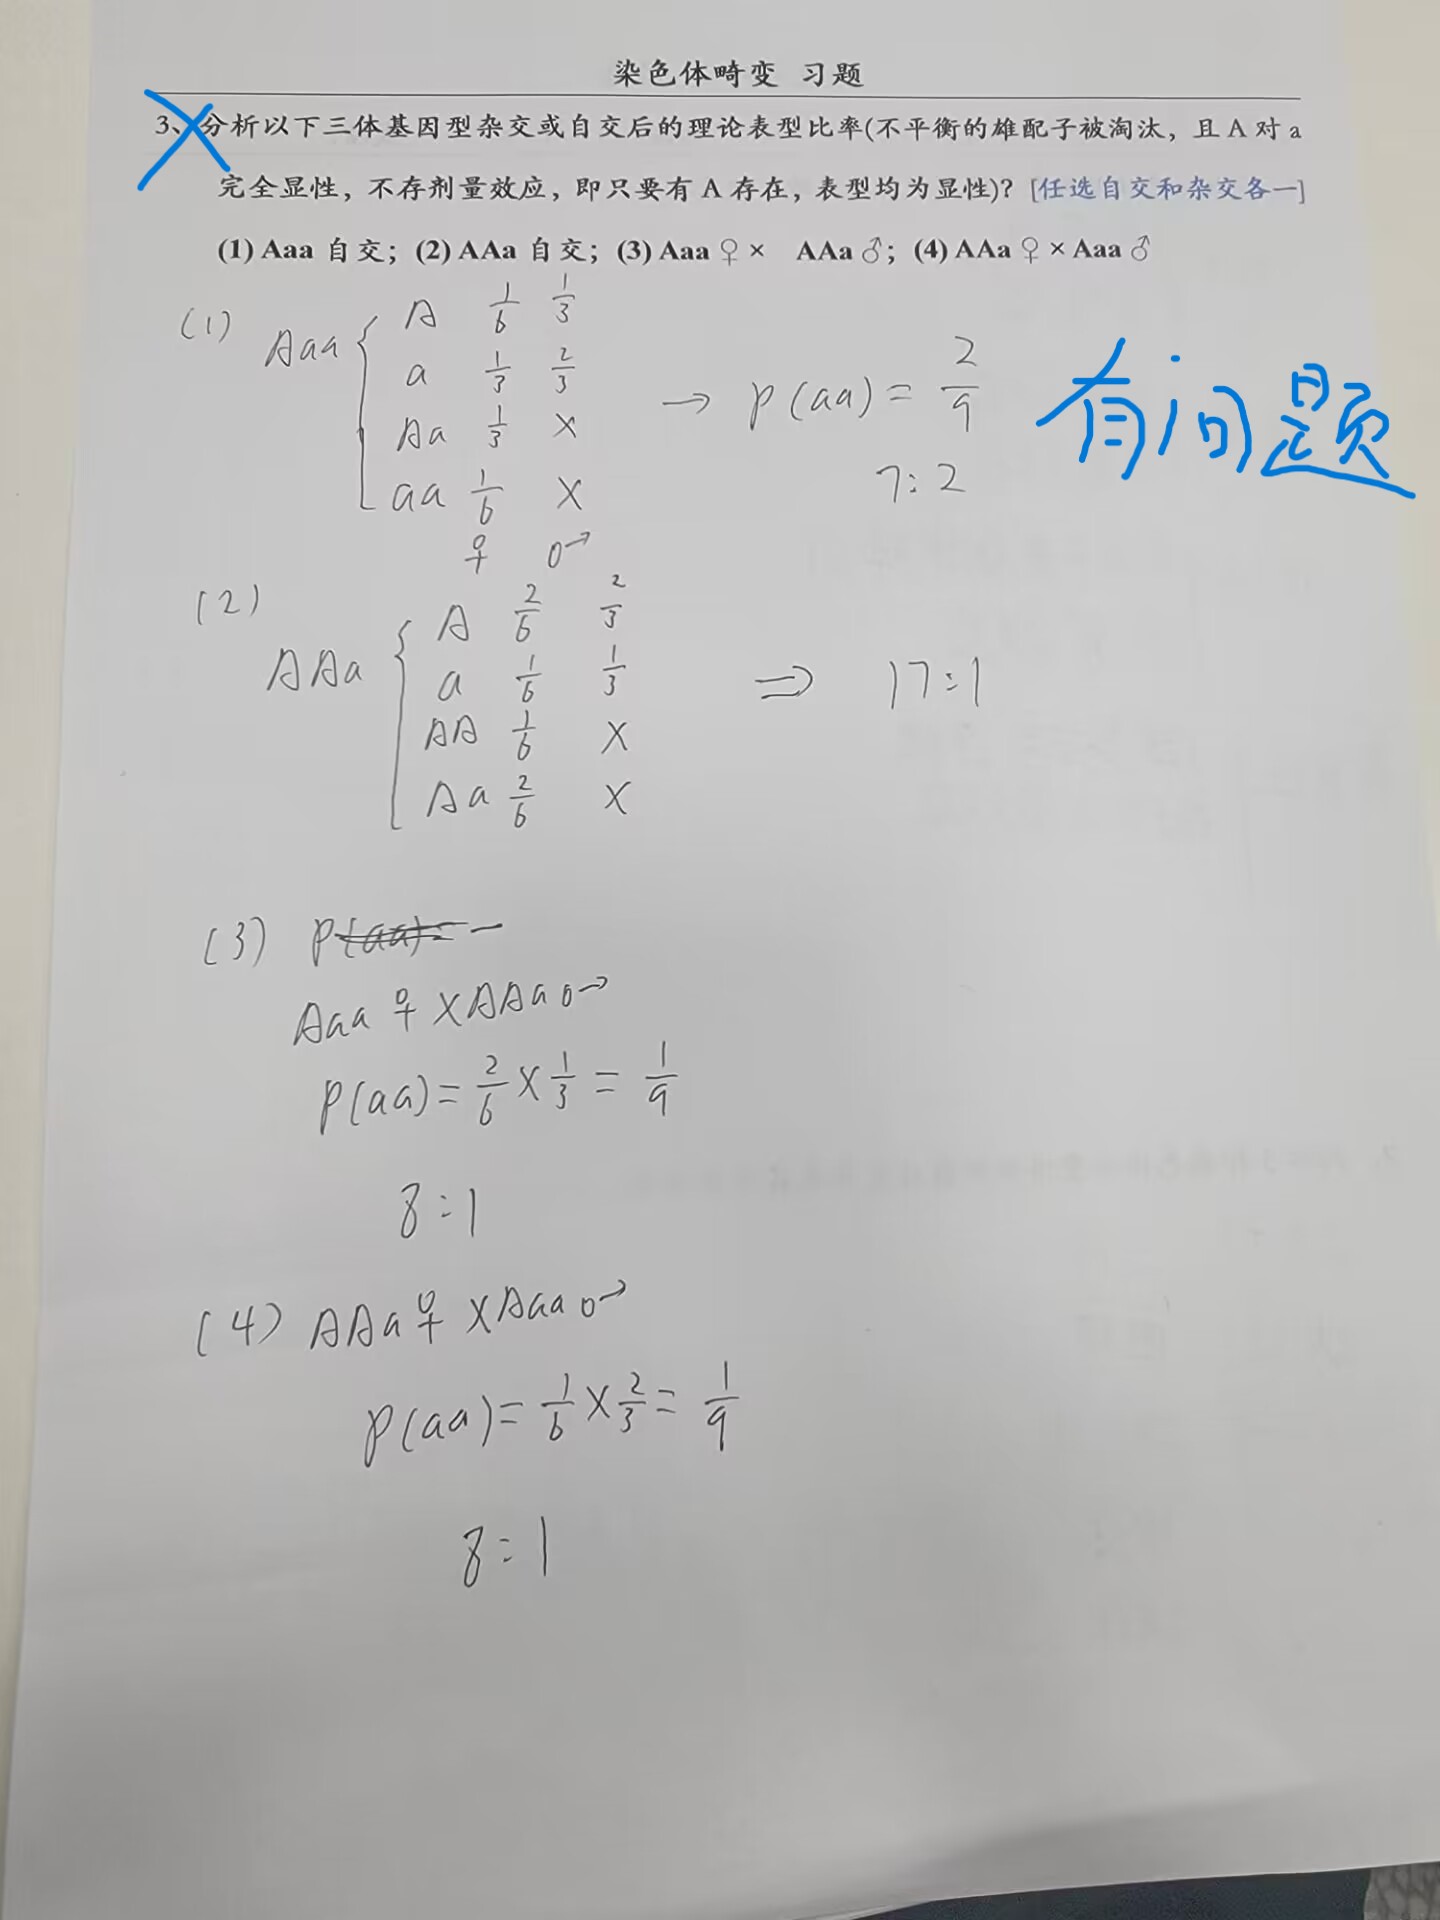 染色体畸变 习题
3、分析以下三体基因型杂交或自交后的理论表型比率(不平衡的雄配子被淘汰，且 A 对 a
完全显性，不存剂量效应，即只要有 A 存在，表型均为显性)? [任选自交和杂交各一]
(1) Aaa 自交；(2) AAa 自交；(3) Aaa ♀ × AAa ♂；(4) AAa ♀ × Aaa ♂
(1) Aaa { A 1/6 1/3
a 1/3 2/3
Aa 1/3 X
aa 1/6 X
♀ ♂
→ P(aa) = 2/9
7:2
有问题
(2) AAa { A 2/6 2/3
a 1/6 1/3
AA 1/6 X
Aa 2/6 X
⇒ 17:1
(3) P(aa)=
Aaa ♀ X AAa ♂
P(aa) = 2/6 X 1/3 = 1/9
8:1
(4) AAa ♀ X Aaa ♂
P(aa) = 1/6 X 2/3 = 1/9
8:1